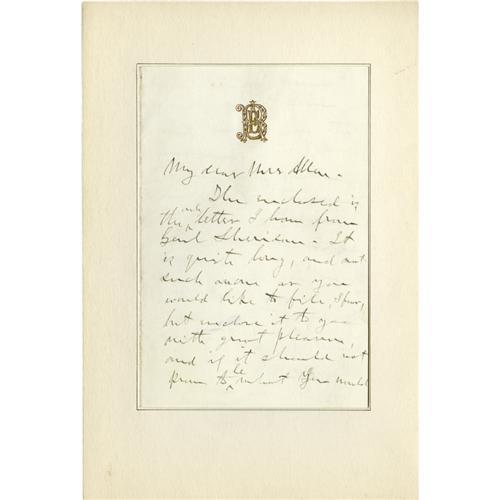 My dear Mrs Allen -
The enclosed is
the only letter I have from
Genl Sheridan - It
is quite long, and not
such a one as you
would like to file, I fear,
but enclose it to you
with great pleasure,
and if it should not
prove to be what you would